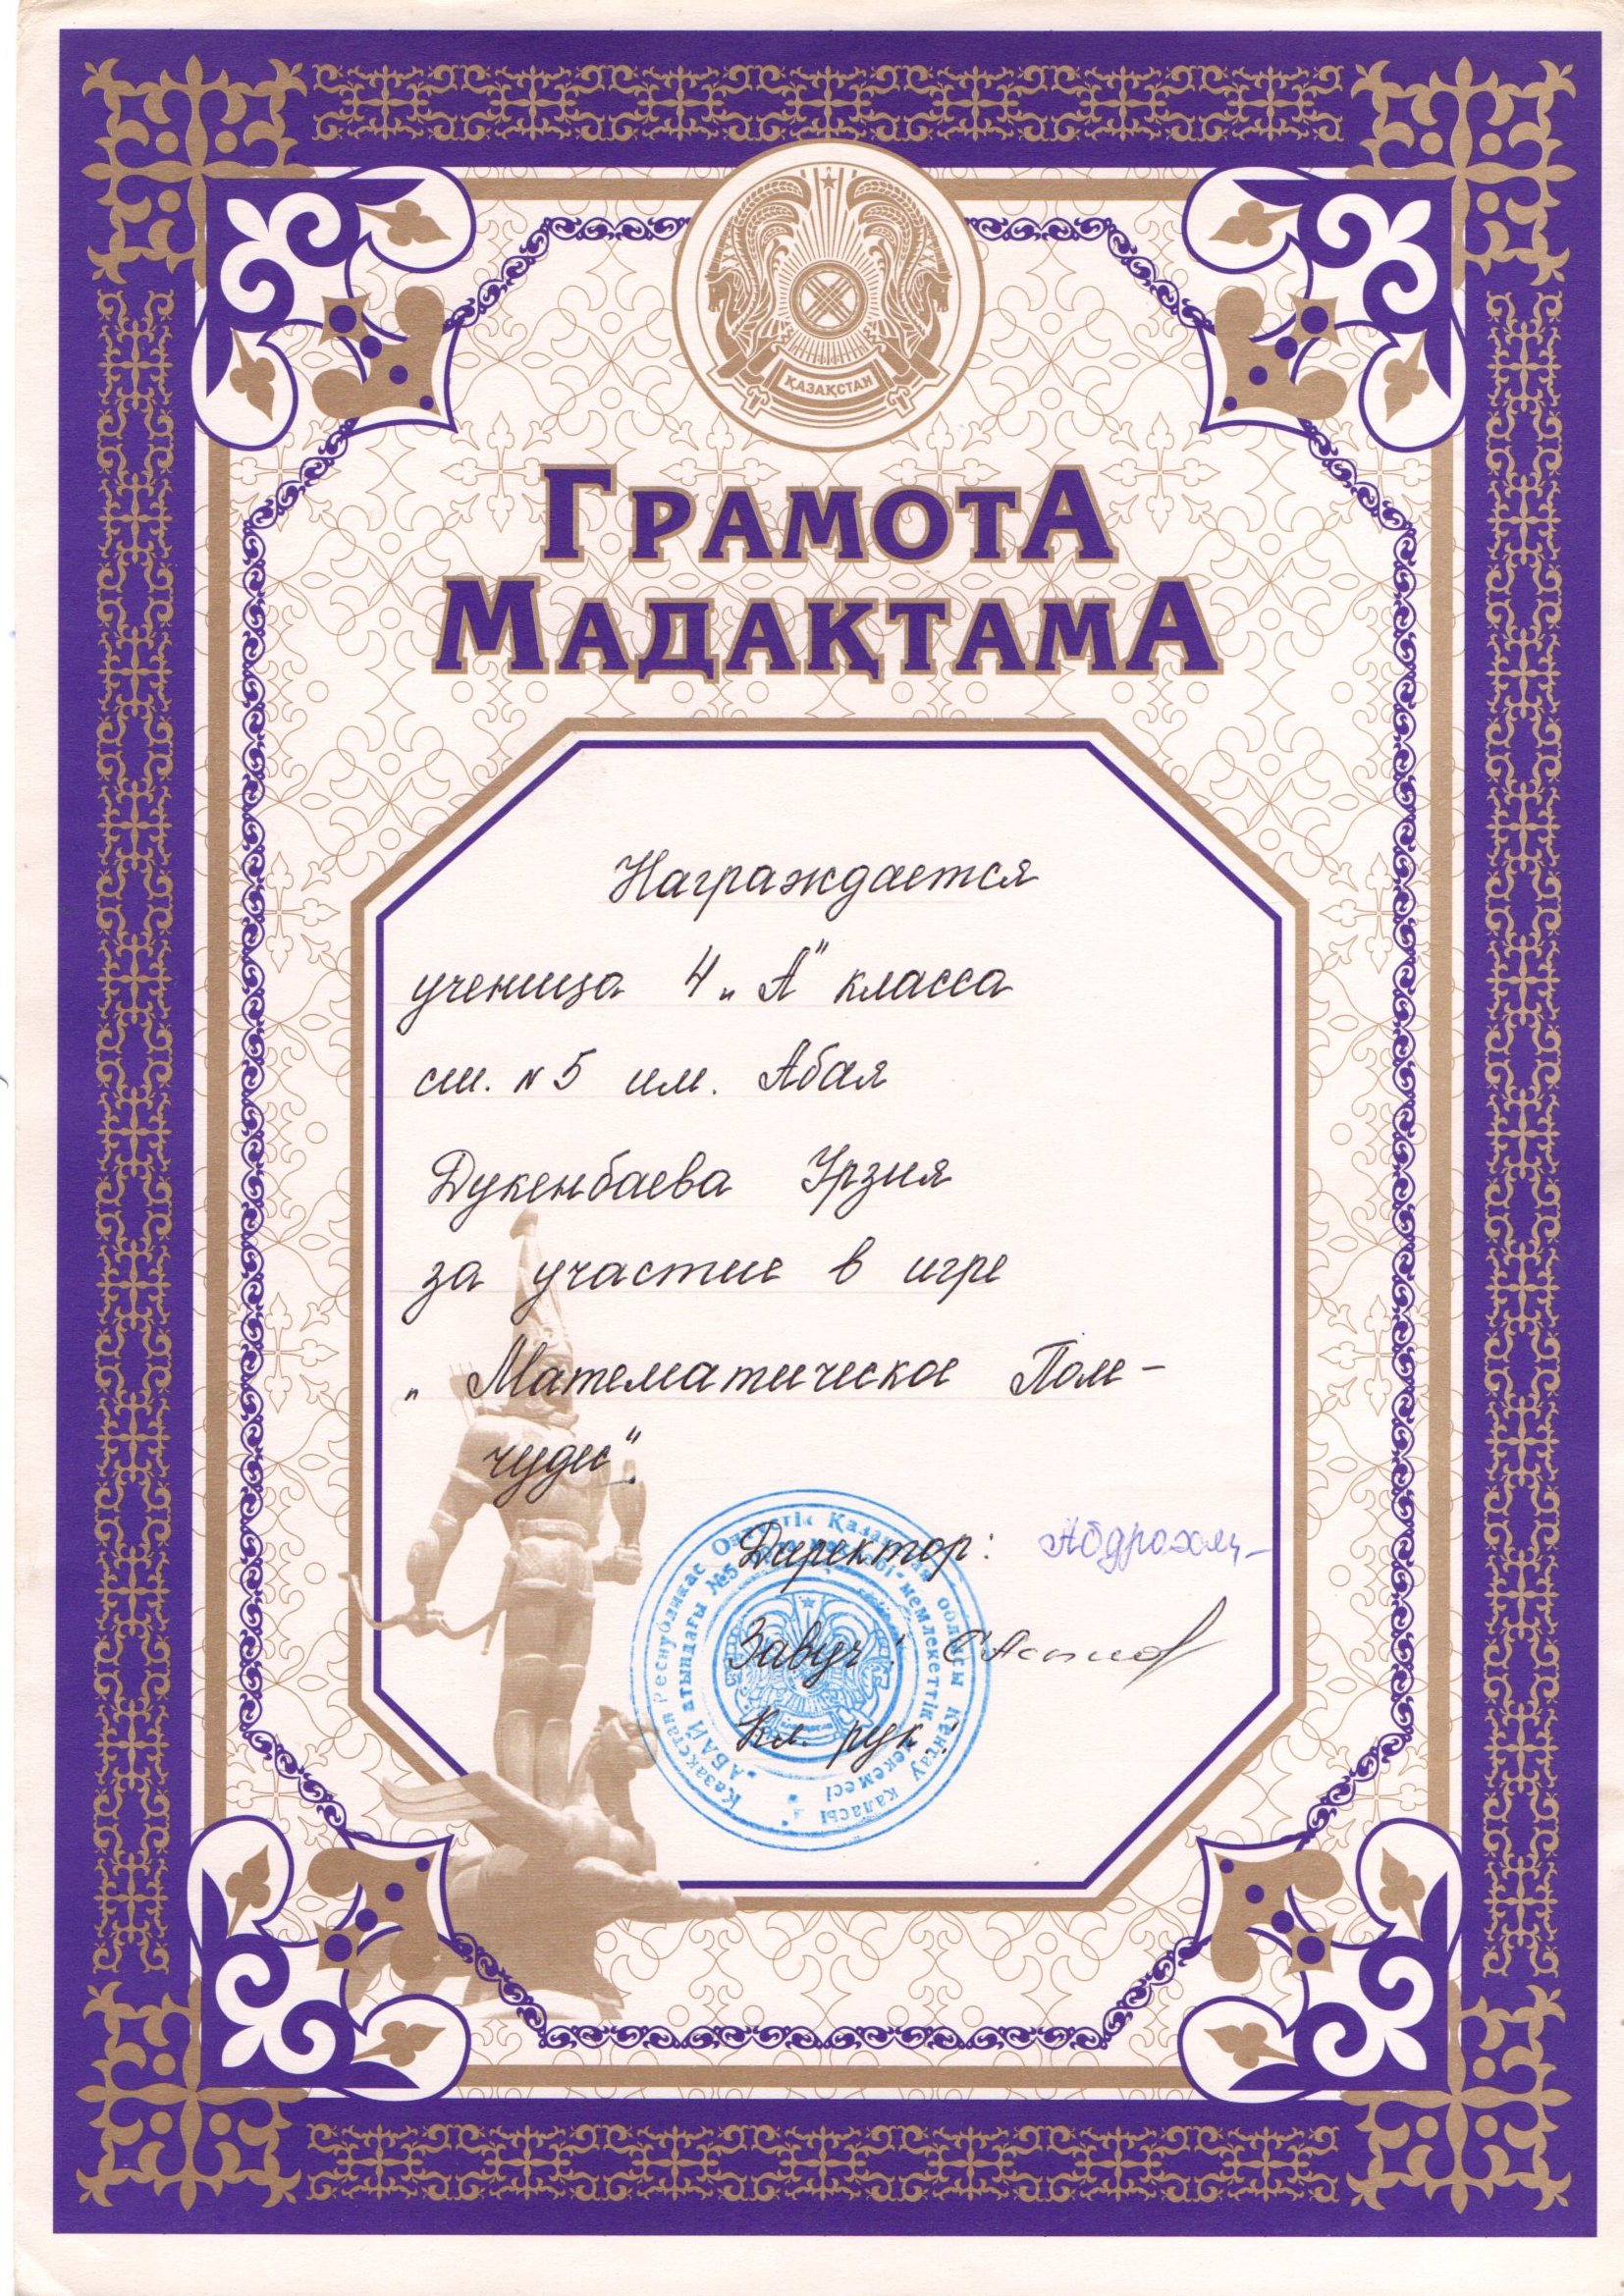 ҚАЗАҚСТАН
ГРАМОТА
МАДАҚТАМА
Награждается
ученица 4 „А" класса
сш. № 5 им. Абая
Дукенбаева Урзия
за участие в игре
„Математическое Поле-
чудес".
Директор:
Завуч:
Кл. рук:
Қазақстан Республикас Оңтүстік Қазақстан облысы Кентау қаласы
"АБАЙ атындағы №5 мемлекеттік мекемесі